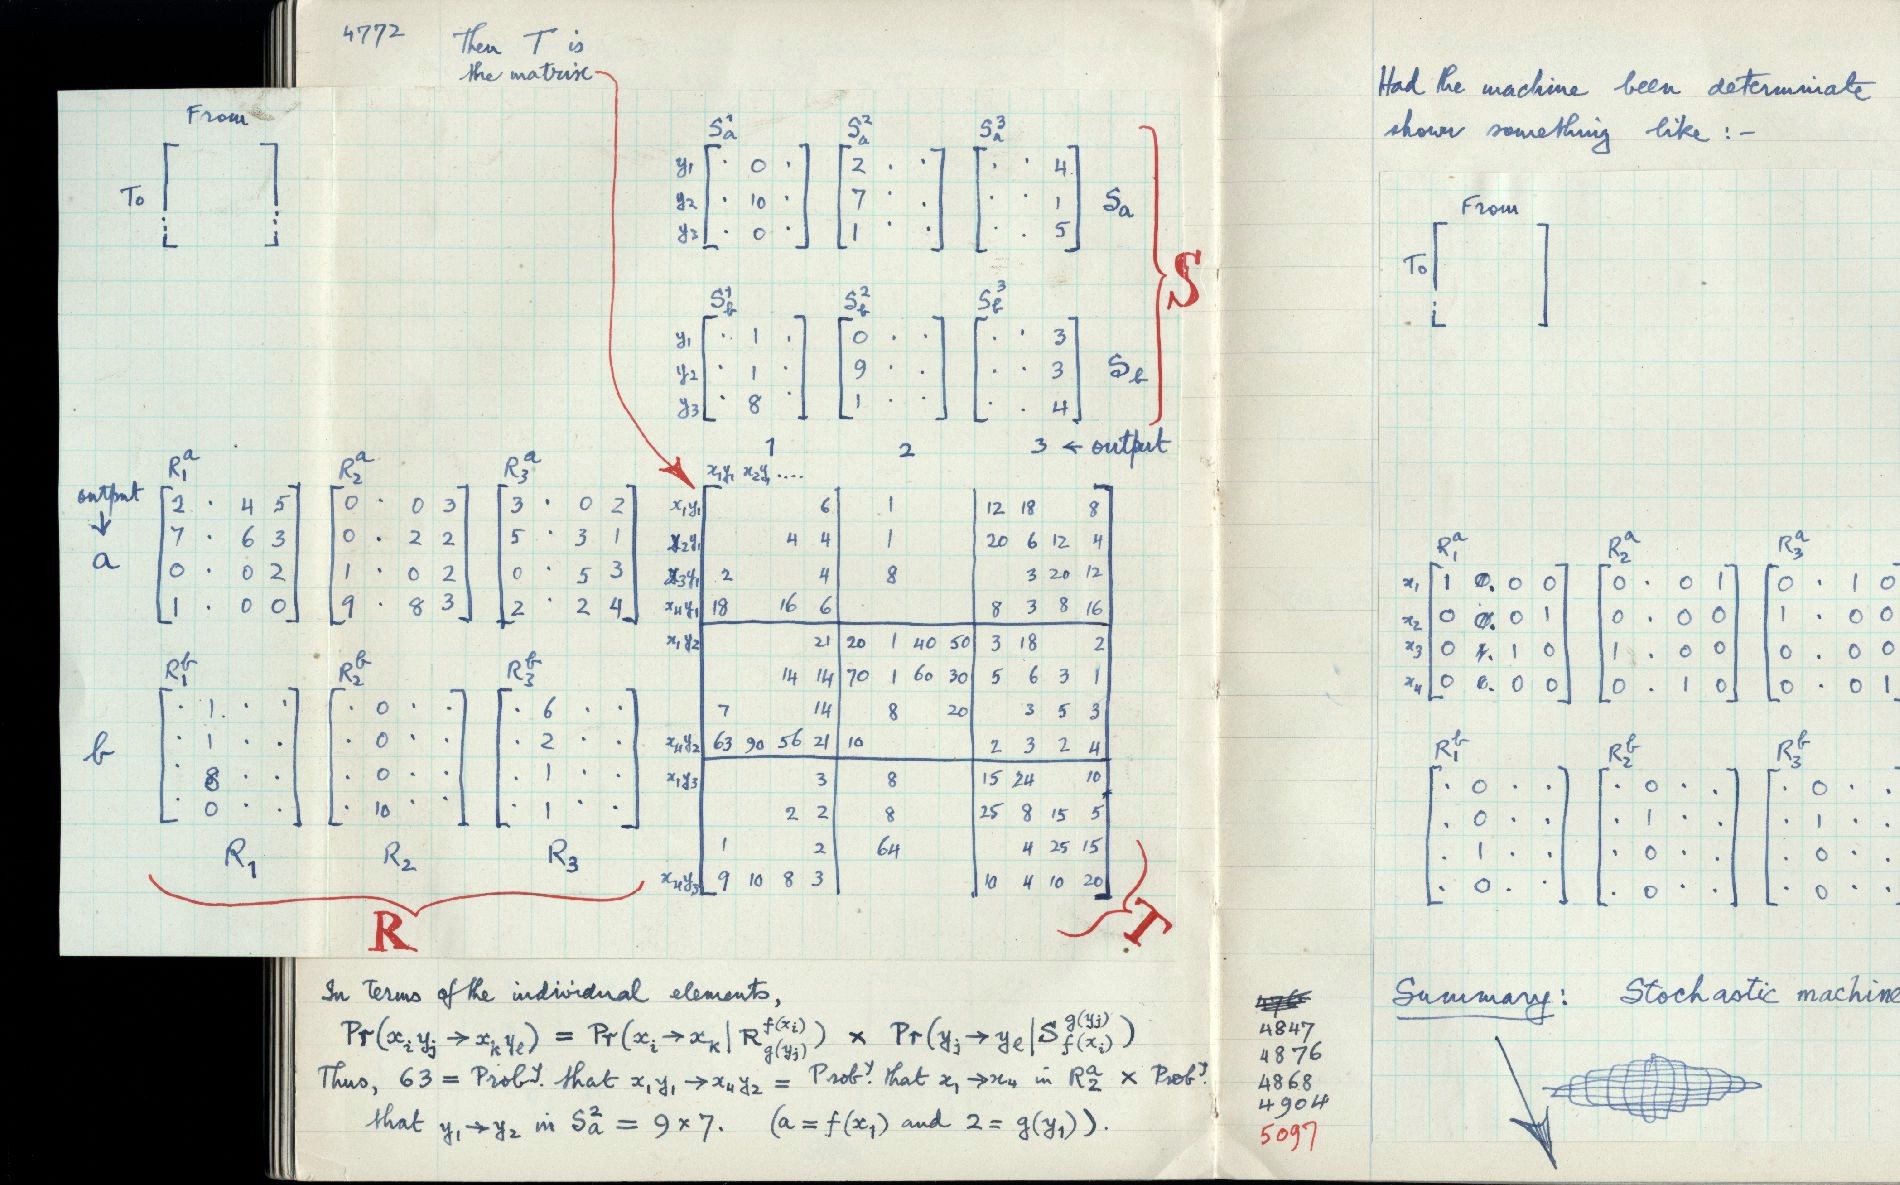 4772
Then T is
the matrix
From
To
S¹a S²a S³a
y1 [· 0 ·] [2 · ·] [· · 4]
y2 [· 10 ·] [7 · ·] [· · 1] Sa
y3 [· 0 ·] [1 · ·] [· · 5]
S
S¹b S²b S³b
y1 [· 1 ·] [0 · ·] [· · 3]
y2 [· 1 ·] [9 · ·] [· · 3] Sb
y3 [· 8 ·] [1 · ·] [· · 4]
1 2 3 ← output
output
↓
a
R1^a R2^a R3^a
[2 · 4 5] [0 · 0 3] [3 · 0 2]
[7 · 6 3] [0 · 2 2] [5 · 3 1]
[0 · 0 2] [1 · 0 2] [0 · 5 3]
[1 · 0 0] [9 · 8 3] [2 · 2 4]
b
R1^b R2^b R3^b
[· 1 · ·] [· 0 · ·] [· 6 · ·]
[· 1 · ·] [· 0 · ·] [· 2 · ·]
[· 8 · ·] [· 0 · ·] [· 1 · ·]
[· 0 · ·] [· 10 · ·] [· 1 · ·]
R1 R2 R3
R
x1y1 x2y1 ....
x1y1 6 1 12 18 8
x2y1 4 4 1 20 6 12 4
x3y1 2 4 8 3 20 12
x4y1 18 16 6 8 3 8 16
x1y2 21 20 1 40 50 3 18 2
14 14 70 1 60 30 5 6 3 1
7 14 8 20 3 5 3
x4y2 63 90 56 21 10 2 3 2 4
x1y3 3 8 15 24 10
2 2 8 25 8 15 5
1 2 64 4 25 15
x4y3 9 10 8 3 10 4 10 20
T
In terms of the individual elements,
Pr(xi yj → xk yl) = Pr(xi → xk | R^f(xi) g(yj)) × Pr(yj → yl | S^g(yj) f(xi))
Thus, 63 = Prob^y. that x1y1 → x4y2 = Prob^y. that x1 → x4 in R2^a × Prob^y.
that y1 → y2 in S²a = 9 × 7. (a = f(x1) and 2 = g(y1)).
4847
4876
4868
4904
5097
Had the machine been determinate
shown something like :-
From
To
R1^a R2^a R3^a
x1 [1 0. 0 0] [0 · 0 1] [0 · 1 0
x2 [0 0. 0 1] [0 · 0 0] [1 · 0 0
x3 [0 1. 1 0] [1 · 0 0] [0 · 0 0
x4 [0 0. 0 0] [0 · 1 0] [0 · 0 1
R1^b R2^b R3^b
[· 0 · ·] [· 0 · ·] [· 0 ·
[· 0 · ·] [· 1 · ·] [· 1 ·
[· 1 · ·] [· 0 · ·] [· 0 ·
[· 0 · ·] [· 0 · ·] [· 0 ·
Summary: Stochastic machine